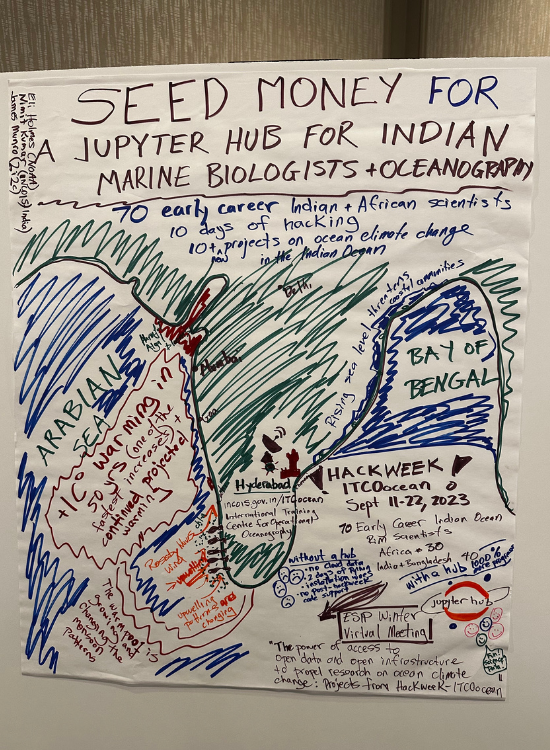 SEED MONEY FOR
A JUPYTER HUB FOR INDIAN
MARINE BIOLOGISTS + OCEANOGRAPHY
Eli Holmes (NOAA)
70 early career Indian + African scientists
10 days of hacking
10+ new projects on ocean climate change
in the Indian Ocean
Delhi
Mumbai
Goa
ARABIAN
SEA
+1C° warming in
50 yrs (one of the
fastest increases) +
continued projected
warming
Rising sea level threatens
coastal communities
BAY OF
BENGAL
Hyderabad
incois.gov.in/ITCOocean
International Training
Centre for Operational
Oceanography
HACKWEEK
ITCOocean
Sept 11-22, 2023
70 Early Career Indian Ocean
Rim Scientists
Africa 30
India + Bangladesh 40
without a hub
- no cloud data
- 2 days of Python
installation woes
- no post-hackweek
code support
with a hub
jupyter hub
upwelling
Upwelling
patterns are
changing
The warm pool is
growing and
changing the
monsoon
patterns
ESIP Winter
Virtual Meeting
"The power of access to
open data and open infrastructure
to propel research on ocean climate
change: Projects from Hackweek-ITCOocean"